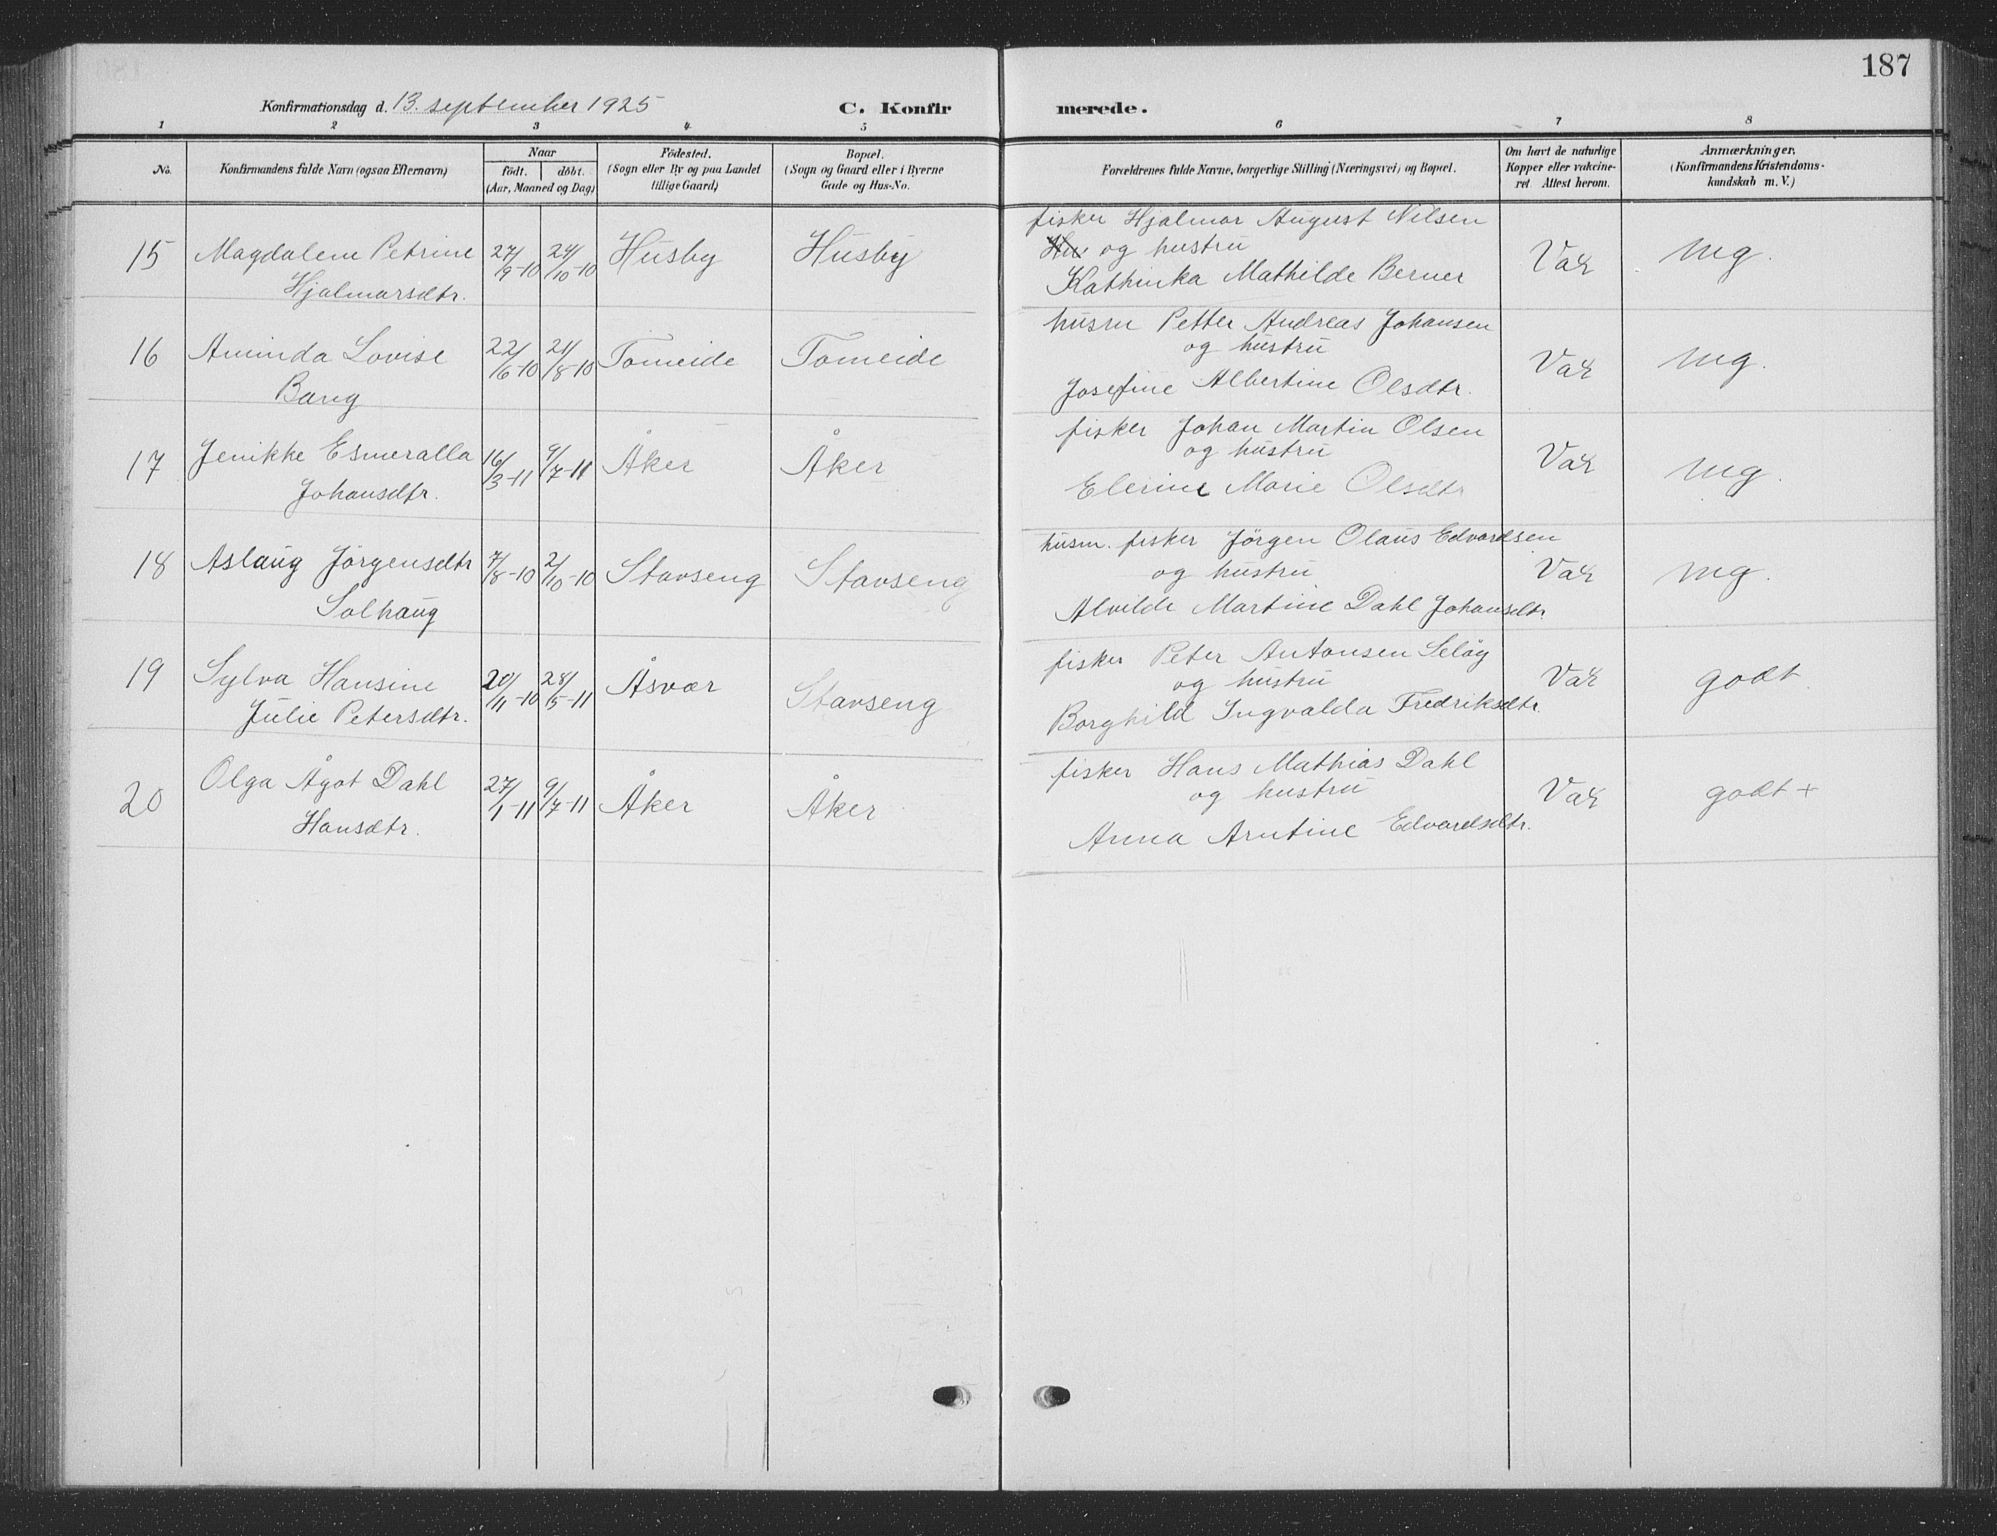 187
Konfirmationsdag d. 13. september 1925 C. Konfirmerede.
1 2 3 4 5 6 7 8
No.
Konfirmandens fulde Navn (ogsaa Efternavn)
Naar
født. døbt.
(Aar, Maaned og Dag)
Fødested.
(Sogn eller By og paa Landet
tillige Gaard)
Bopæl.
(Sogn og Gaard eller i Byerne
Gade og Hus-No.
Forældrenes fulde Navne, borgerlige Stilling (Næringsvei) og Bopæl.
Om havt de naturlige
Kopper eller vakcine-
ret. Attest herom.
Anmærkninger.
(Konfirmandens Kristendoms-
kundskab m. V.)
fisker Hjalmar August Nilsen
15 Magdalene Petrine 27/9-10 24/10-10 Husby Husby og hustru Vak mg.
Hjalmarsdtr. Kathinka Mathilde Berner
husm Petter Andreas Johansen
16 Aminda Lovise 22/6-10 21/8-10 Tomeide Tomeide og hustru Vak mg.
Bang Josefine Albertine Olsdtr.
fisker Johan Martin Olsen
17 Jenikke Esmeralla 16/3-11 9/7-11 Åker Åker og hustru Vak mg.
Johansdtr. Elerine Marie Olsdtr
husm. fisker Jørgen Olaus Edvardsen
18 Aslaug Jørgensdtr 7/8-10 2/10-10 Stavseng Stavseng og hustru Vak mg.
Solhaug Alvilde Martine Dahl Johansdtr.
fisker Peter Antonsen Seløy
19 Sylva Hansine 20/11-10 28/5-11 Åsvær Stavseng og hustru Vak godt.
Julie Petersdtr. Borghild Ingvalda Fredriksdtr.
fisker Hans Mathias Dahl
20 Olga Ågot Dahl 27/1-11 9/7-11 Åker Åker og hustru Vak godt +
Hansdtr. Anna Arntine Edvardsdtr.